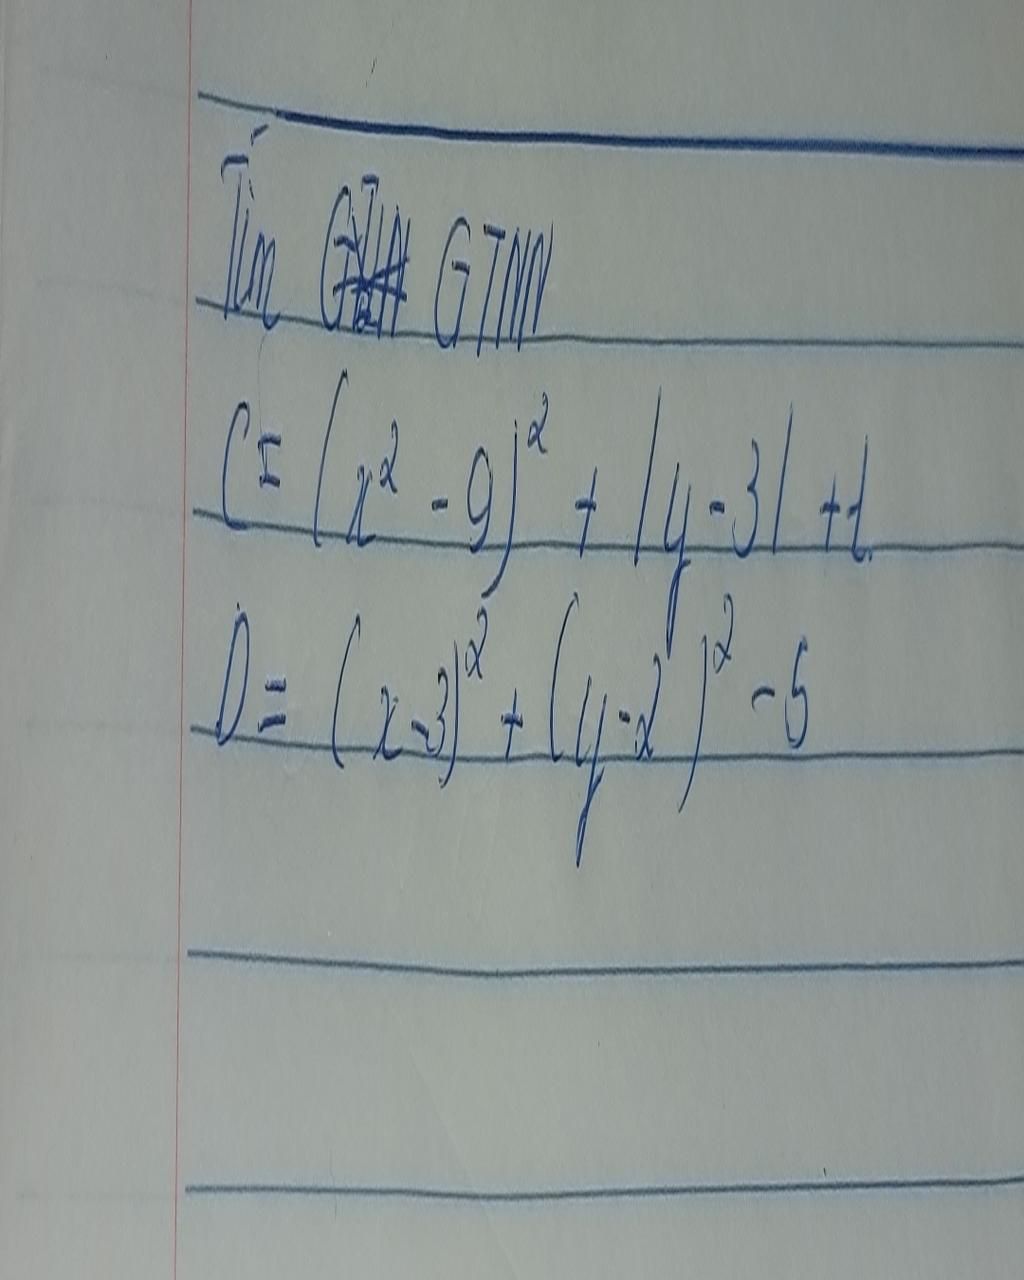 Tìm GTNN
C = (x² - 9)² + |y - 3| + 1
D = (x - 3)² + (y - 2)² - 5